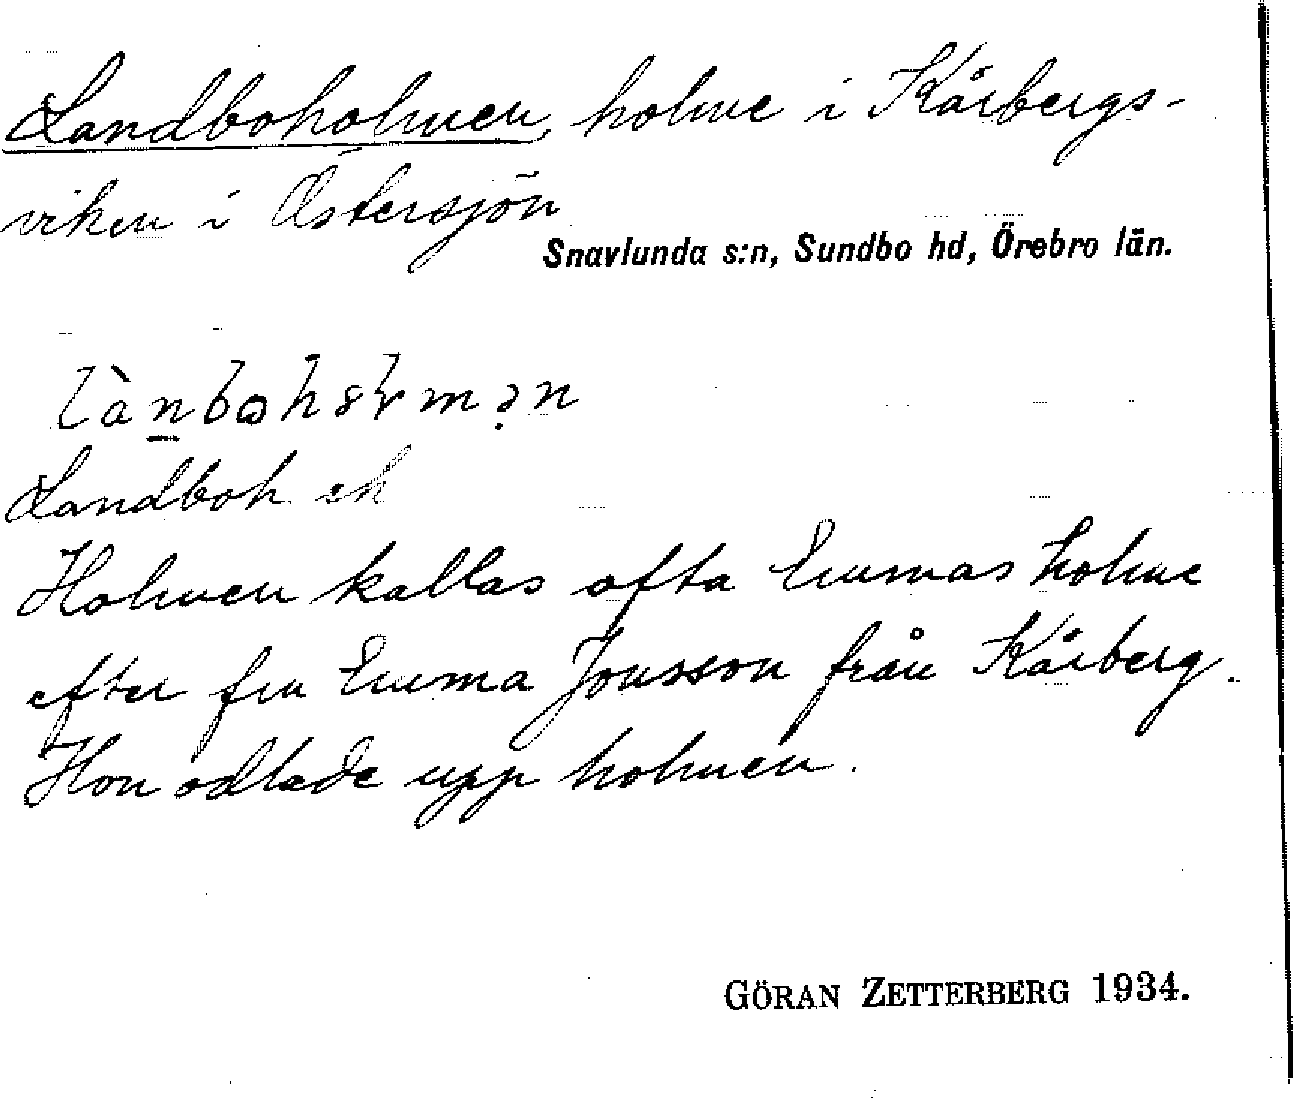 Landboholmen, holme i Kårbergs-
viken i Östersjön
Snavlunda s:n, Sundbo hd, Örebro län.
Landboh. ek
Holmen kallas ofta Emmas holme
efter fru Emma Jonsson från Kårberg.
Hon odlade upp holmen.
GÖRAN ZETTERBERG 1934.